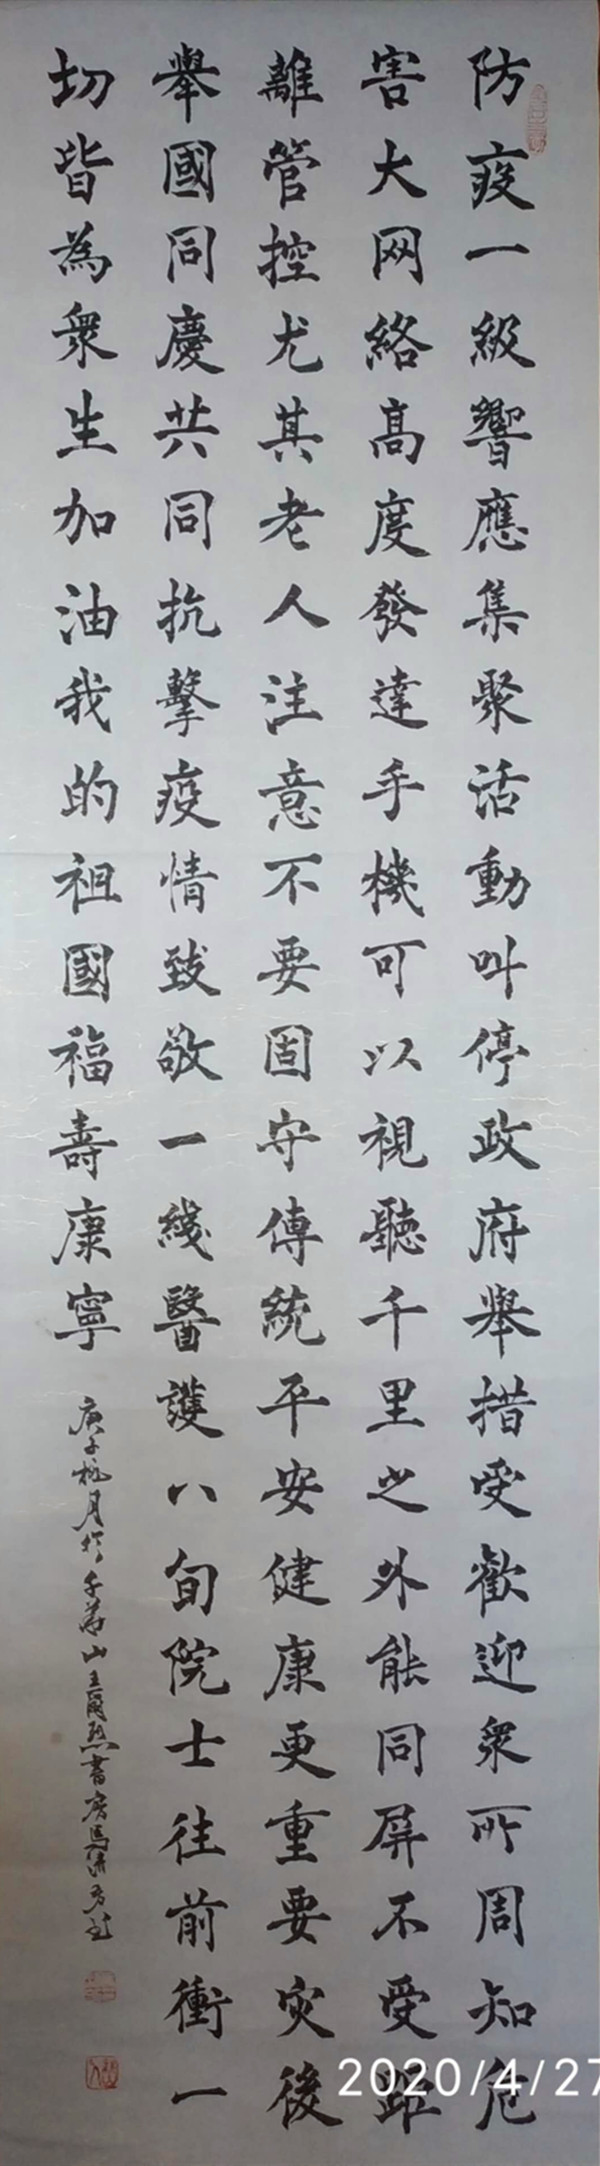 防疫一級響應集聚活動叫停政府舉措受歡迎衆所周知危
害大网絡高度發達手機可以視聽千里之外能同屏不受距
離管控尤其老人注意不要固守傳統平安健康更重要灾後
舉國同慶共同抗擊疫情致敬一綫醫護八旬院士往前衝一
切皆為衆生加油我的祖國福壽康寧
庚子桃月於千華山王爾烈書房馬洪
2020/4/27